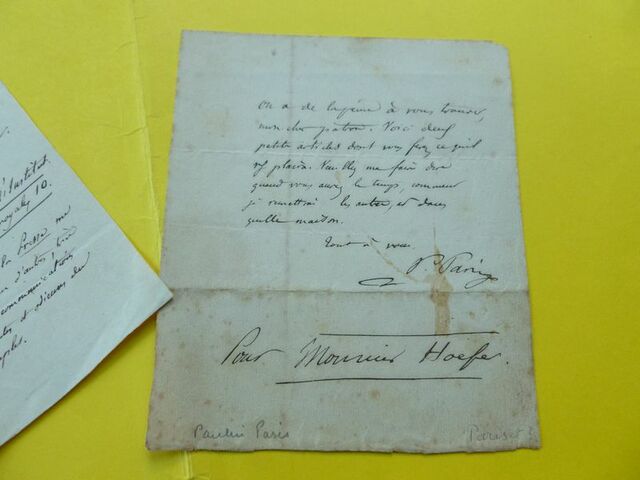 r.
l'Institut.
royale, 10.
la Presse me
d'autres
communications
et
On a de la peine à vous trouver,
mon cher patron. Voici deux
petits articles dont vous ferez ce qu'il
vs plaira. Veuillez me faire dire
quand vous aurez le temps, comment
je remettrai les autres, et dans
quelle maison.
Tout à vous.
P. Paris
Pour Monsieur Hoefer.
Paulin Paris
Pariset ?